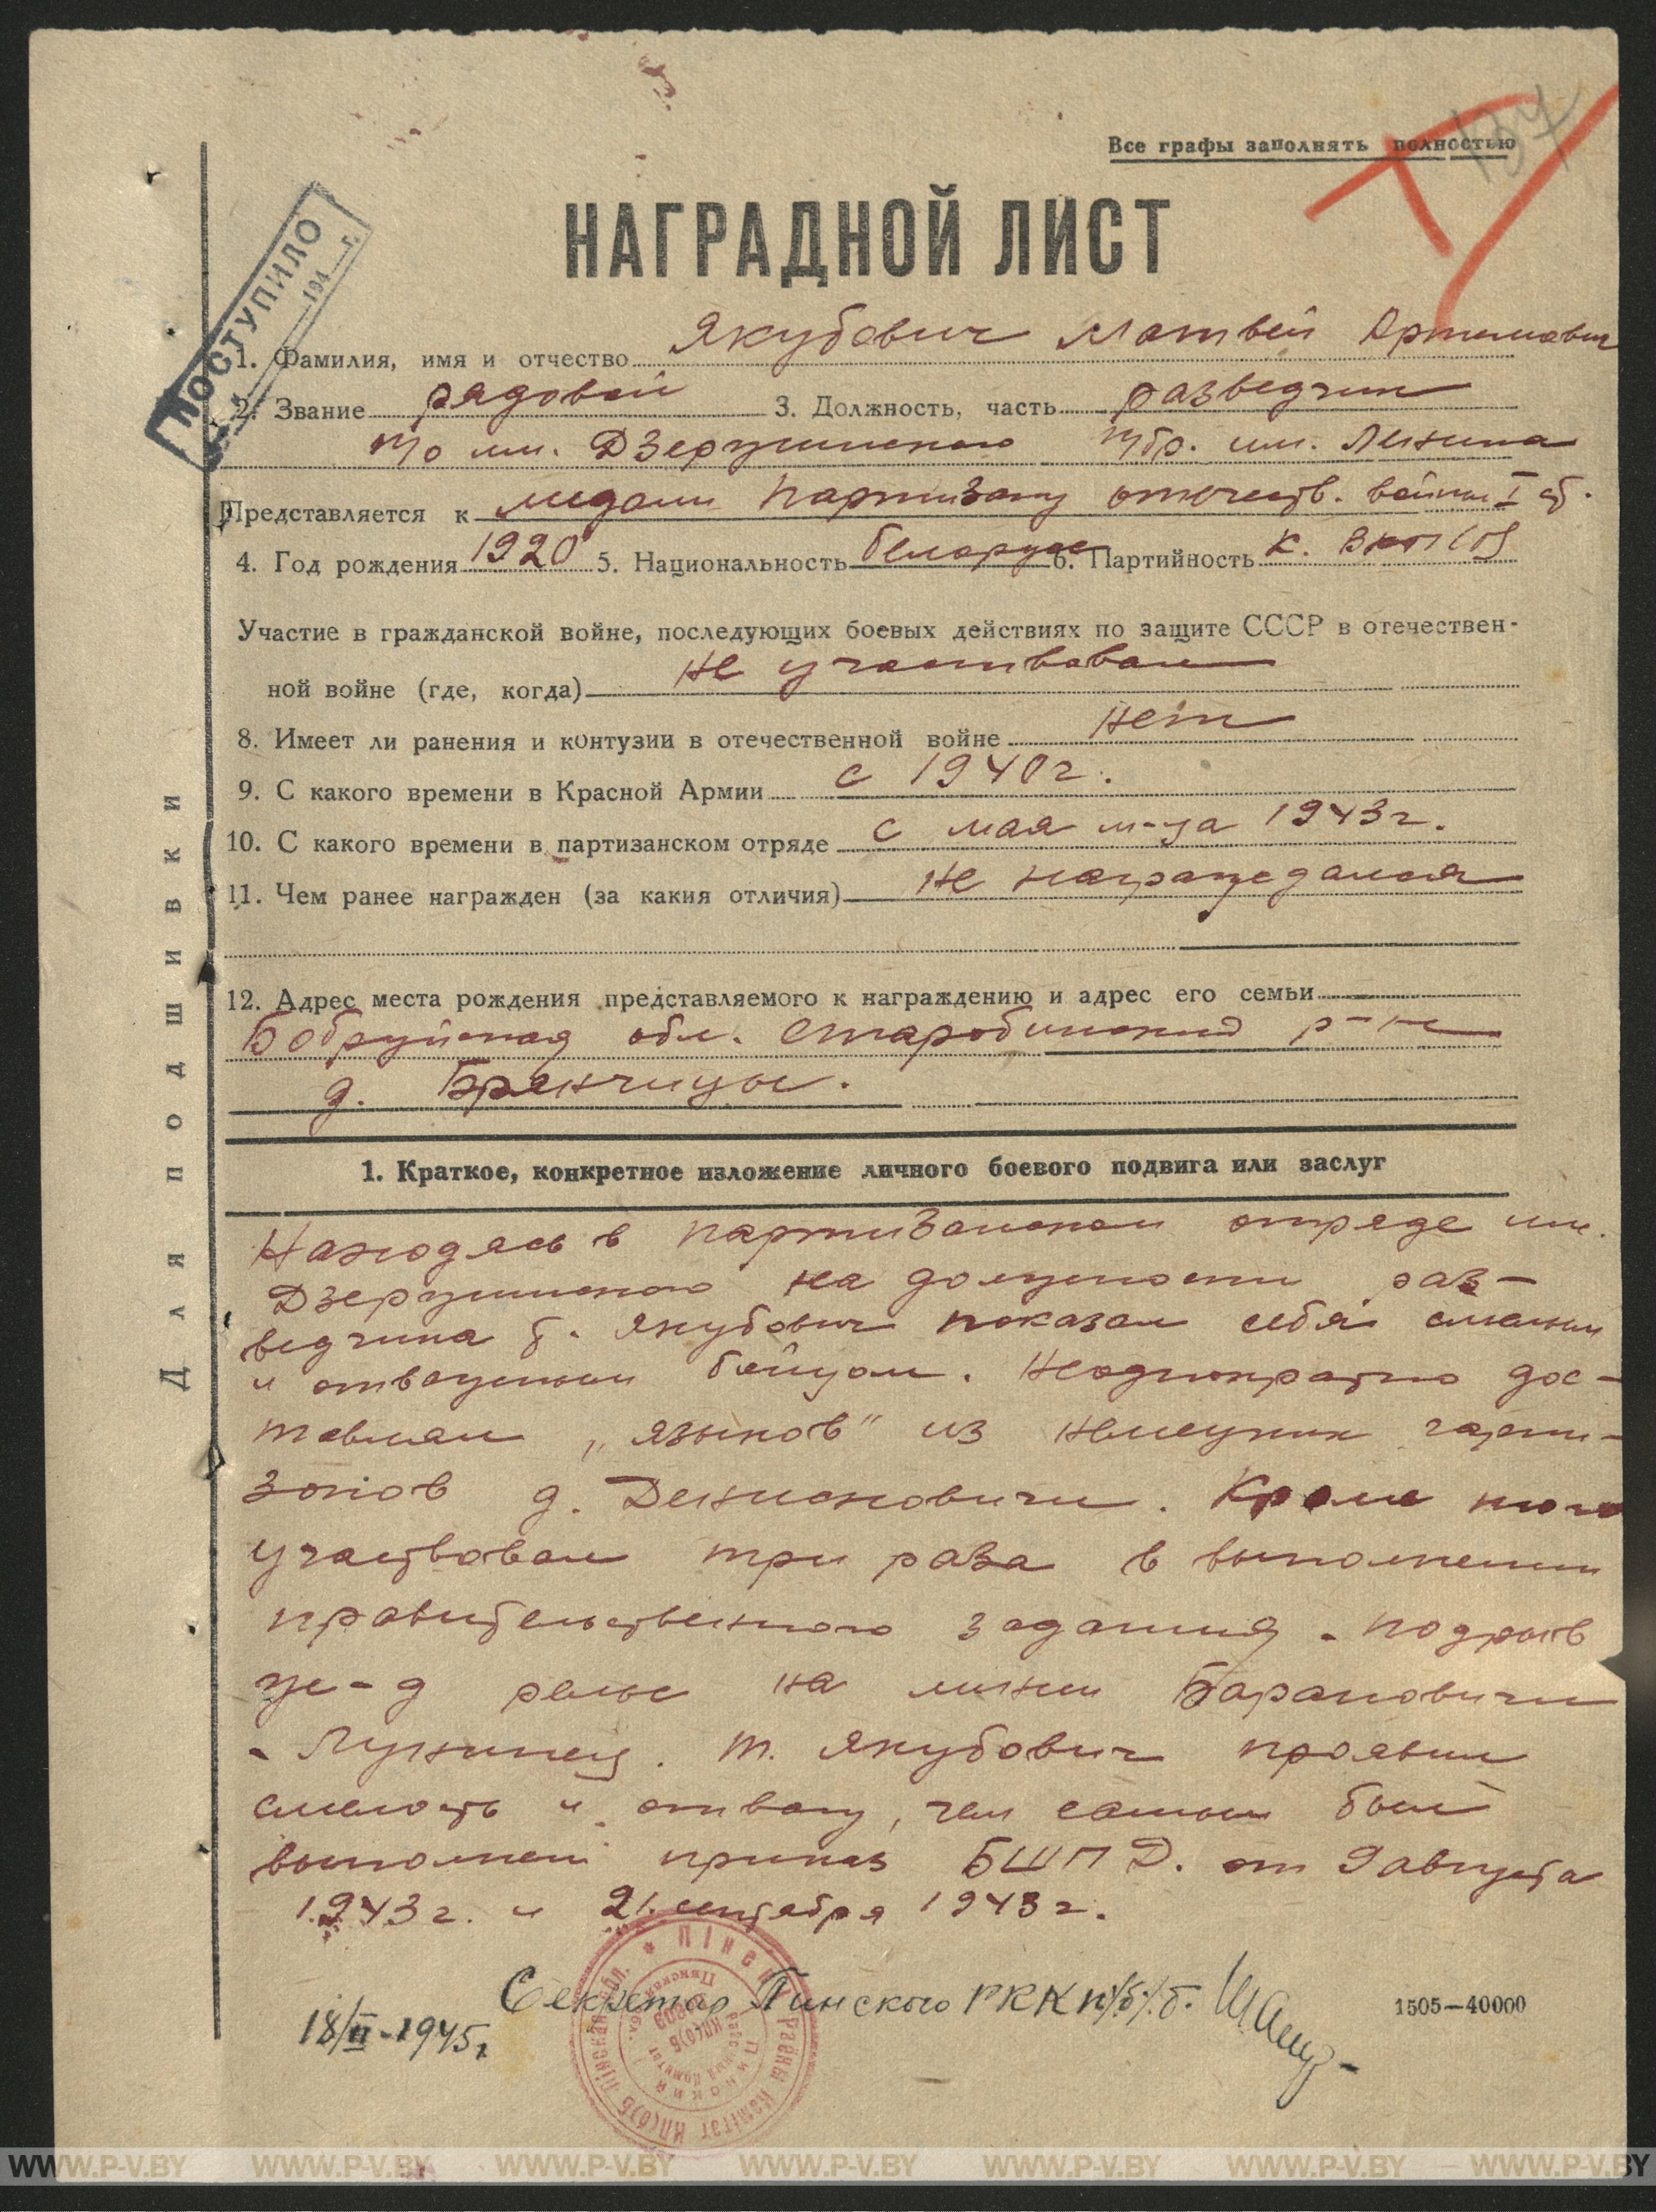 137
Все графы заполнять полностью
НАГРАДНОЙ ЛИСТ
ПОСТУПИЛО
194 г.
1. Фамилия, имя и отчество Якубович Матвей Артемович
2. Звание рядовой 3. Должность, часть разведчик
п/о им. Дзержинского п/бр. им. Ленина
Представляется к медали Партизану отечеств. войны I ст.
4. Год рождения 1920 5. Национальность беларус 6. Партийность к. ВКП(б)
Участие в гражданской войне, последующих боевых действиях по защите СССР в отечествен-
ной войне (где, когда) не участвовал
8. Имеет ли ранения и контузии в отечественной войне нет
9. С какого времени в Красной Армии с 1940 г.
10. С какого времени в партизанском отряде с мая м-ца 1943 г.
11. Чем ранее награжден (за какия отличия) не награждался
12. Адрес места рождения представляемого к награждению и адрес его семьи
Бобруйская обл. Старобинский р-н
д. Брянчицы.
Для подшивки
1. Краткое, конкретное изложение личного боевого подвига или заслуг
Находясь в партизанском отряде им.
Дзержинского на должности раз-
ведчика т. Якубович показал себя смелым
и отважным бойцом. Неоднократно дос-
тавлял „языков" из немецких гарни-
зонов д. Денисковичи. Кроме того
участвовал три раза в выполнении
правительственного задания - подрыв
ж-д рельс на линии Барановичи
- Лунинец. т. Якубович проявил
смелость и отвагу, чем самым был
выполнен приказ БШПД. от 9 августа
1943 г. и 21 сентября 1943 г.
Секретар Пинского РККП/б/.Б.
18/II-1945 г.
1505—40000
WWW.P-V.BY WWW.P-V.BY WWW.P-V.BY WWW.P-V.BY WWW.P-V.BY WWW.P-V.BY WWW.P-V.BY